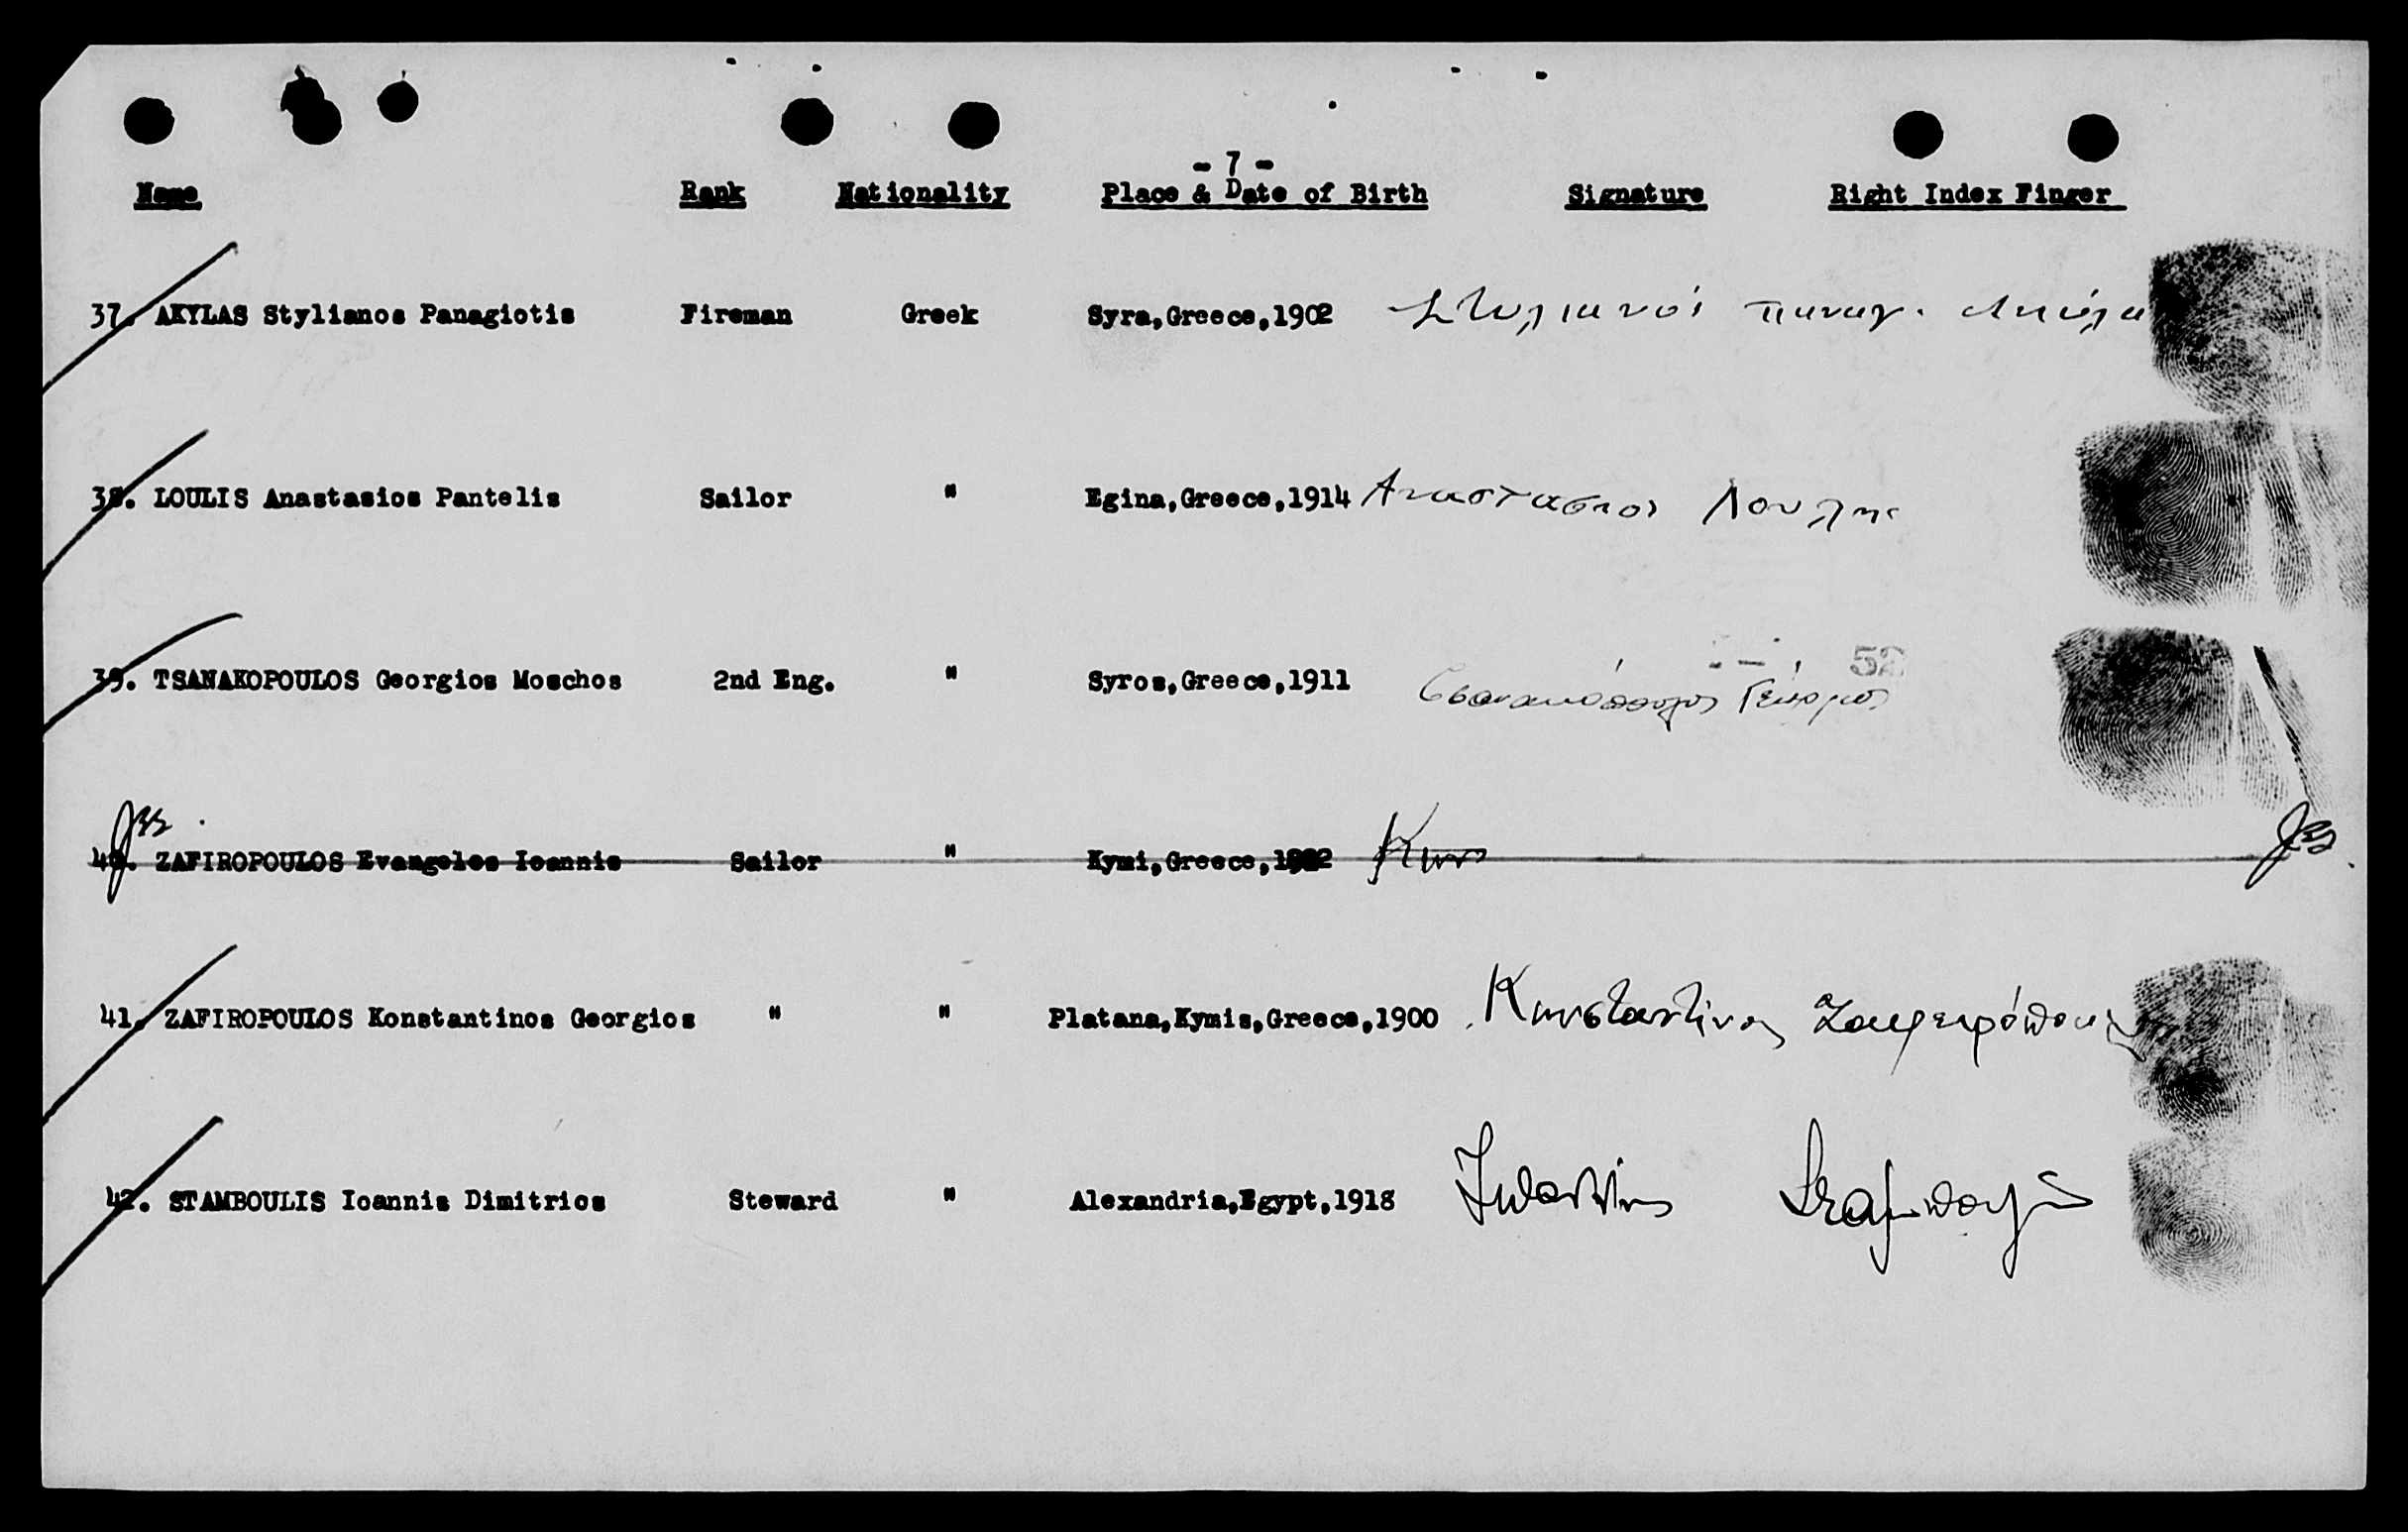 - 7 -
Name Rank Nationality Place & Date of Birth Signature Right Index Finger
37. AKYLAS Stylianos Panagiotis Fireman Greek Syra,Greece,1902 Στυλιανός Παναγ. Ακύλα
38. LOULIS Anastasios Pantelis Sailor " Egina,Greece,1914 Αναστασιος Λουλης
52
39. TSANAKOPOULOS Georgios Moschos 2nd Eng. " Syros,Greece,1911 Τσανακόπουλος Γεώργιος
40. ZAFIROPOULOS Evangelos Ioannis Sailor " Kymi,Greece, Κων
41. ZAFIROPOULOS Konstantinos Georgios " " Platana,Kymis,Greece,1900 Κωνσταντίνος Ζαφειρόπουλος
42. STAMBOULIS Ioannis Dimitrios Steward " Alexandria,Egypt,1918 Ιωάννης Σταμπουλής